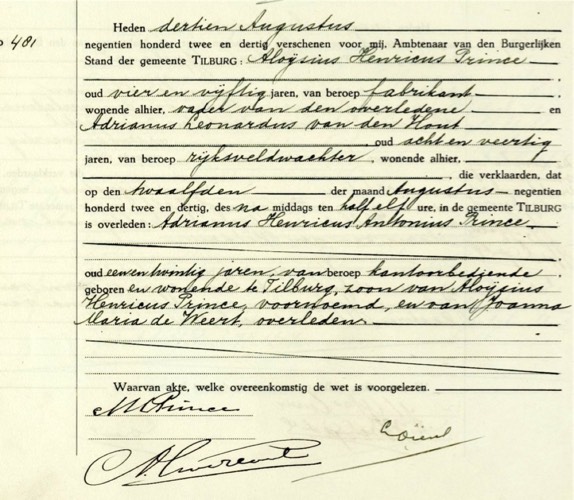 481
Heden dertien Augustus
negentien honderd twee en dertig verschenen voor mij, Ambtenaar van den Burgerlijken
Stand der gemeente TILBURG: Aloÿsius Henricus Prince
oud vier en vijftig jaren, van beroep fabrikant
wonende alhier, vader van den overledene en
Adrianus Leonardus van den Hout
, oud acht en veertig
jaren, van beroep rijksveldwachter, wonende alhier,
, die verklaarden, dat
op den twaalfden der maand Augustus negentien
honderd twee en dertig, des na middags ten half elf ure, in de gemeente TILBURG
is overleden: Adrianus Henricus Antonius Prince
oud een en twintig jaren, van beroep kantoorbediende
geboren en wonende te Tilburg, zoon van Aloÿsius
Henricus Prince, voornoemd, en van Joanna
Maria de Weert, overleden.
Waarvan akte, welke overeenkomstig de wet is voorgelezen.
Prince